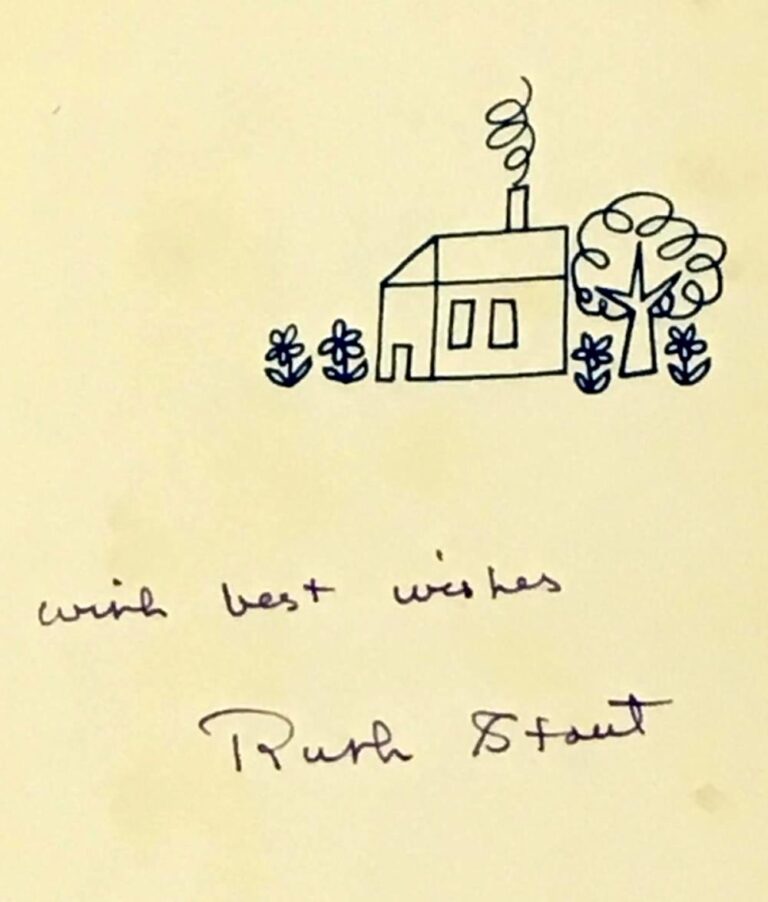 with best wishes
Ruth Stout